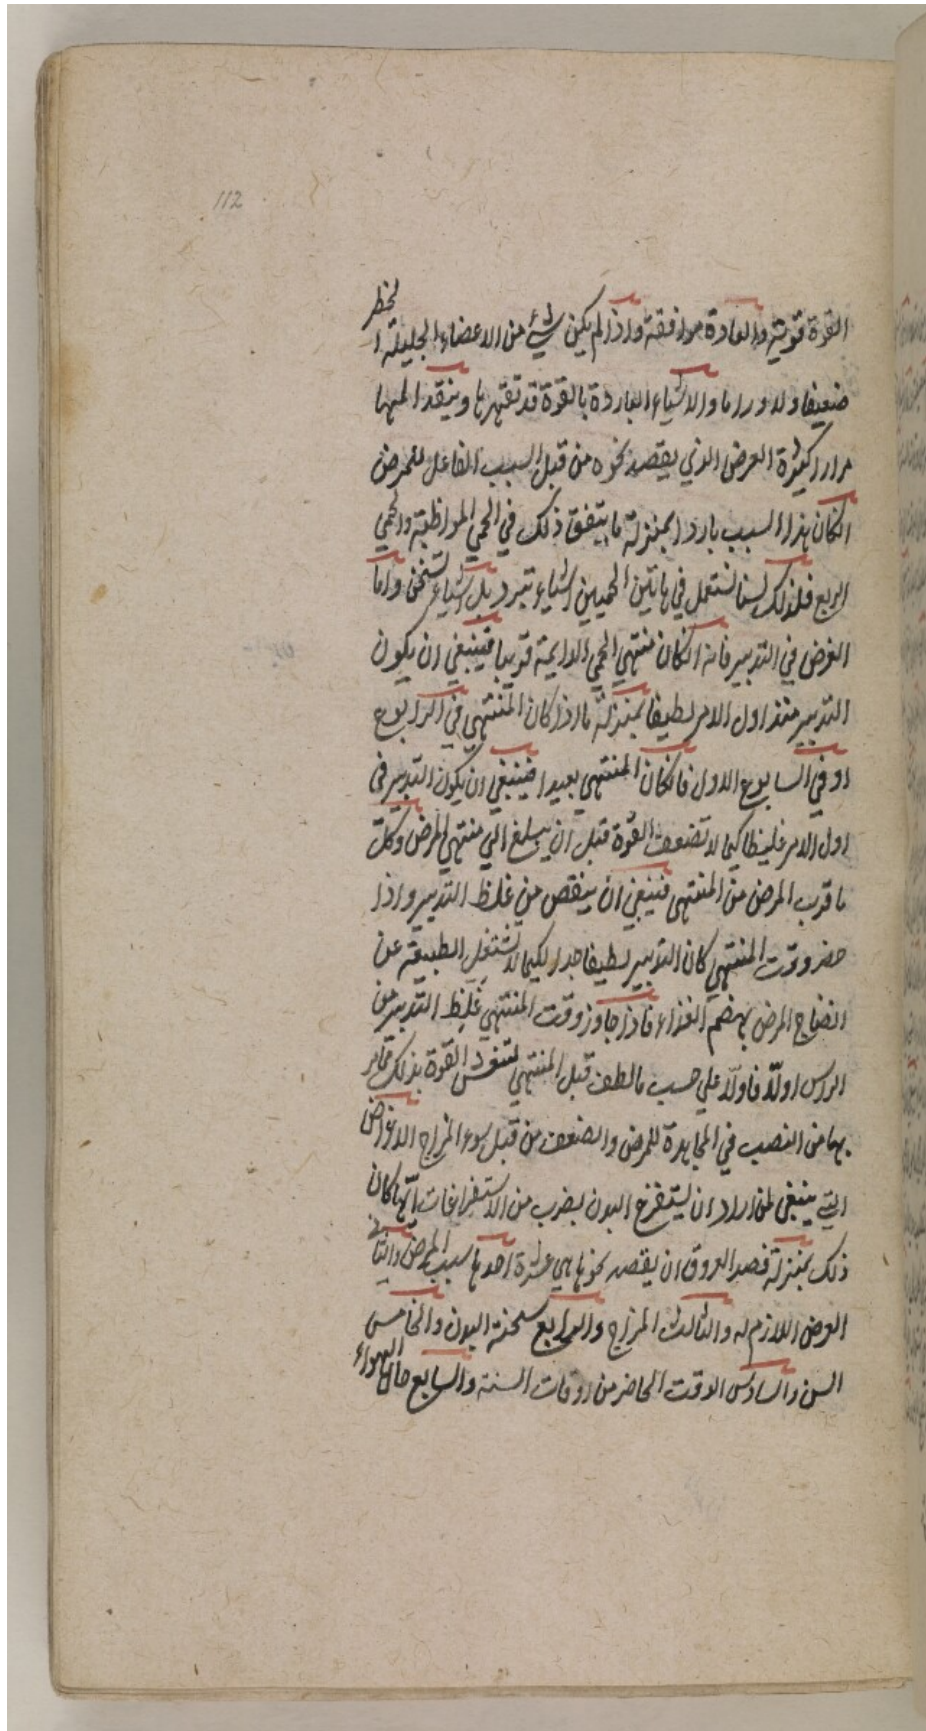 112
القوة قوية والعادة موافقة واذا لم يكن شيء من الاعضاء الجليلة الخطر
ضعيفا ولا وراما والاشياء الباردة بالقوة قد تقهرها وينقد المها
مرارا كثيرة العرض الذي يقصد نحوه من قبل السبب الفاعل للمرض
انكان هذا السبب باردا بمنزلة ما يتفق ذلك في الحمي المواظبة والحمي
الربع فلذلك لسنا نستعمل في هاتين الحميين اشياء تبرد بل اشياء تسخن واما
الغرض في التدبير فانه انكان منتهي الحمي الدايمة قريبا فينبغي ان يكون
التدبير منذ اول الامر لطيفا بمنزلة ما اذا كان المنتهي في الرابوع
او في السابوع الاول فانكان المنتهي بعيدا فينبغي ان يكون التدبير في
اول الامر غليظا كيما لا تضعف القوة قبل ان يبلغ الي منتهي المرض وكلما
ما قرب المرض من المنتهي فينبغي ان ينقص من غلظ التدبير واذا
حضر وقت المنتهي كان التدبير لطيفا جدا لكيما لا تشتغل الطبيعة عن
انضاج المرض بهضم الغذاء فاذا جاوز وقت المنتهي غلظ التدبير من
الراس اولا فاولا علي حسب ما لطف قبل المنتهي لتنعش القوة بذلك مما مر
بها من النصب في المجاهدة للمرض والضعف من قبل سوء المزاج الاغراض
التي ينبغي لمن اراد ان يستفرغ البدن بضرب من الاستفراغات ايها كان
ذلك بمنزلة فصد العروق ان يقصد نحوها هي عشرة احدها سبب المرض والثاني
العرض اللازم له والثالث المزاج والرابع سحنة البدن والخامس
السن والسادس الوقت الحاضر من اوقات السنة والسابع حال الهواء